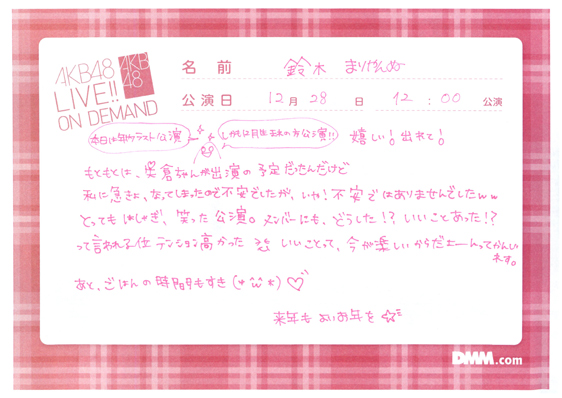 AKB48
LIVE!!
ON DEMAND
AKB
48
名 前 鈴木 まりやんぬ
公演日 12月 28 日 12 : 00 公演
本日は年内ラスト公演
しかも 公演!! 嬉しい! 出れて!
もともとは、 倉ちゃんが出演の予定だったんだけど
私に急きょ、なってしまったので不安でしたが、いや!不安ではありませんでしたww
とってもはしゃぎ、笑った公演。メンバーにも、どうした!?いいことあった!?
って言われる位 テンション高かった いいことって、今が楽しいからだよーんってかんじ
です。
あと、ごはんの時間もすき(*^ω^*)♡
来年もよいお年を☆
DMM.com